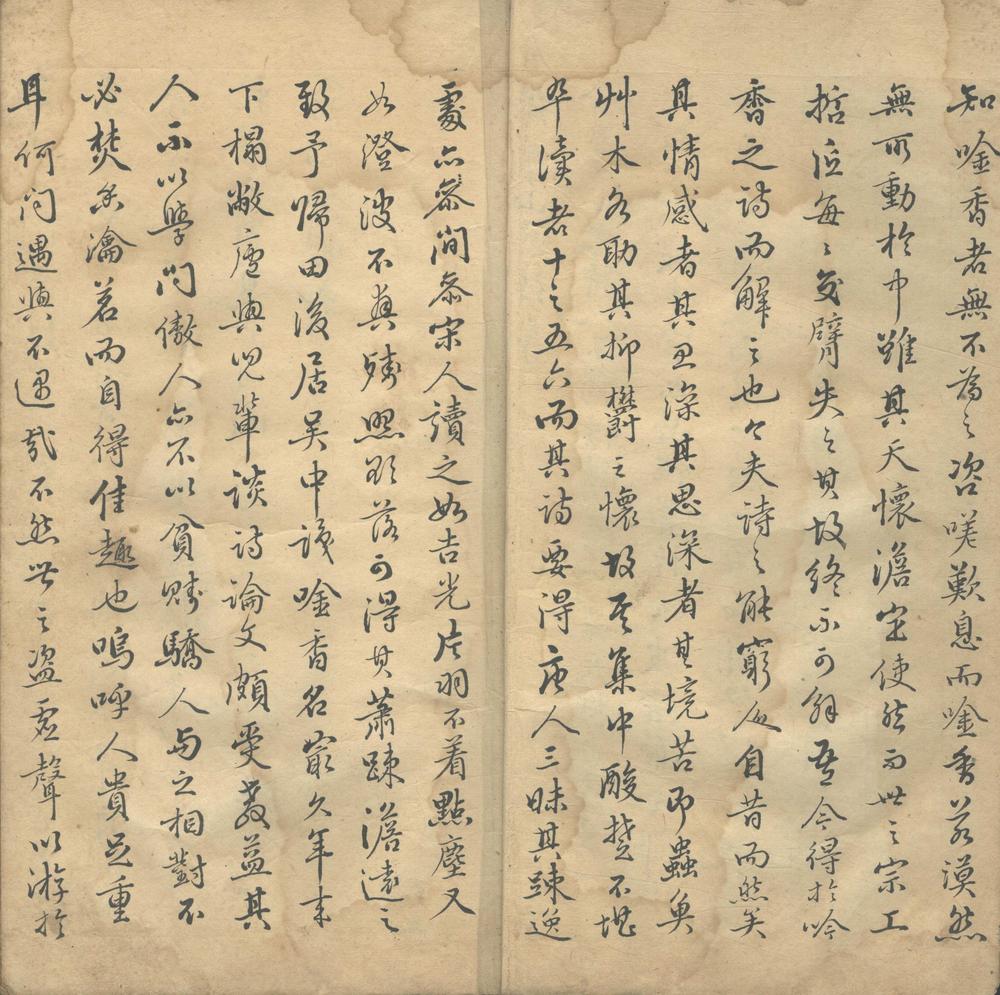 知唫香者無不為之咨嗟歎息而唫香若漠然
無所動於中雖其天懷澹定使然而世之宗工
哲匠每每交臂失之其故終不可解吾今得於吟
香之詩而解之也今夫詩之能窮人自昔而然矣
其情感者其思深其思深者其境苦即蟲魚
艸木各助其抑欝之懷故其集中酸楚不堪
卒讀者十之五六而其詩要得唐人三昧其踈逸
處亦參間參宋人讀之如吉光片羽不着點塵又
如澄波不興殘照欲落可得其蕭踈澹遠之
致予歸田後居吴中識唫香名最久年来
下榻敝廬與兒輩談詩論文頗受教益其
人不以學問傲人亦不以貧賤驕人与之相對不
必焚香瀹茗而自得佳趣也嗚呼人貴足重
耳何問遇與不遇哉不然世之盜虚聲以游於